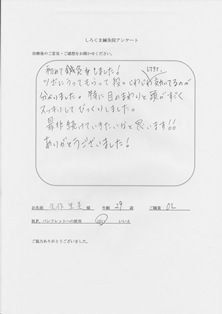 しろくま鍼灸院アンケート
治療後のご意見・ご感想をお聞かせください。
初めて鍼灸をしました!
ツボにうってもらって
のが
分かりました。特に目のまわりと頭がすごく
スッキリしてびっくりしました。
是非続けていきたいかと思います!!
ありがとうございました!
お名前 様 年齢 29 歳 ご職業 OL
H.P、パンフレットへの使用 はい いいえ
ご協力ありがとうございました。